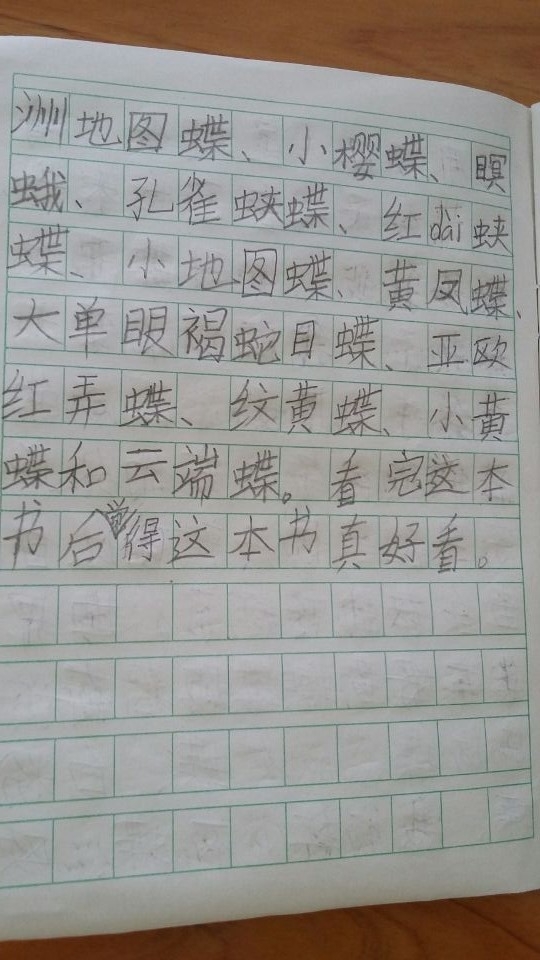 洲地图蝶、小樱蝶、瞑
蛾、孔雀蛱蝶、红dài蛱
蝶、小地图蝶、黄凤蝶、
大单眼褐蛇目蝶、亚欧
红弄蝶、纹黄蝶、小黄
蝶和云端蝶。看完这本
书后觉得这本书真好看。